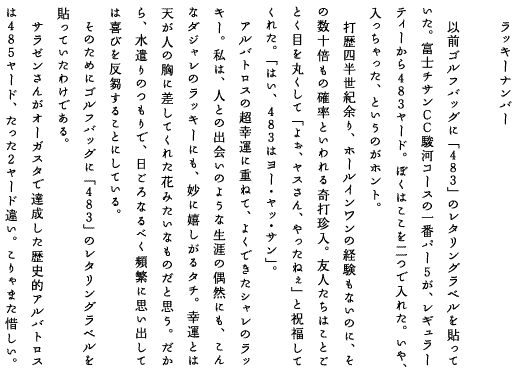 ラッキーナンバー
以前ゴルフバッグに「４８３」のレタリングラベルを貼って
いた。富士チサンＣＣ駿河コースの一番パー５が、レギュラー
ティーから４８３ヤード。ぼくはここを二つで入れた。いや、
入っちゃった、というのがホント。
打歴四半世紀余り、ホールインワンの経験もないのに、そ
の数十倍もの確率といわれる奇打珍入。友人たちはことご
とく目を丸くして「よぉ、ヤスさん、やったねぇ」と祝福して
くれた。「はい、４８３はヨー・ヤッ・サン」。
アルバトロスの超幸運に重ねて、よくできたシャレのラッ
キー。私は、人との出会いのような生涯の偶然にも、こん
なダジャレのラッキーにも、妙に嬉しがるタチ。幸運とは
天が人の胸に差してくれた花みたいなものだと思う。だか
ら、水遣りのつもりで、日ごろなるべく頻繁に思い出して
は喜びを反芻することにしている。
そのためにゴルフバッグに「４８３」のレタリングラベルを
貼っていたわけである。
サラゼンさんがオーガスタで達成した歴史的アルバトロス
は４８５ヤード、たった２ヤード違い。こりゃまた惜しい。